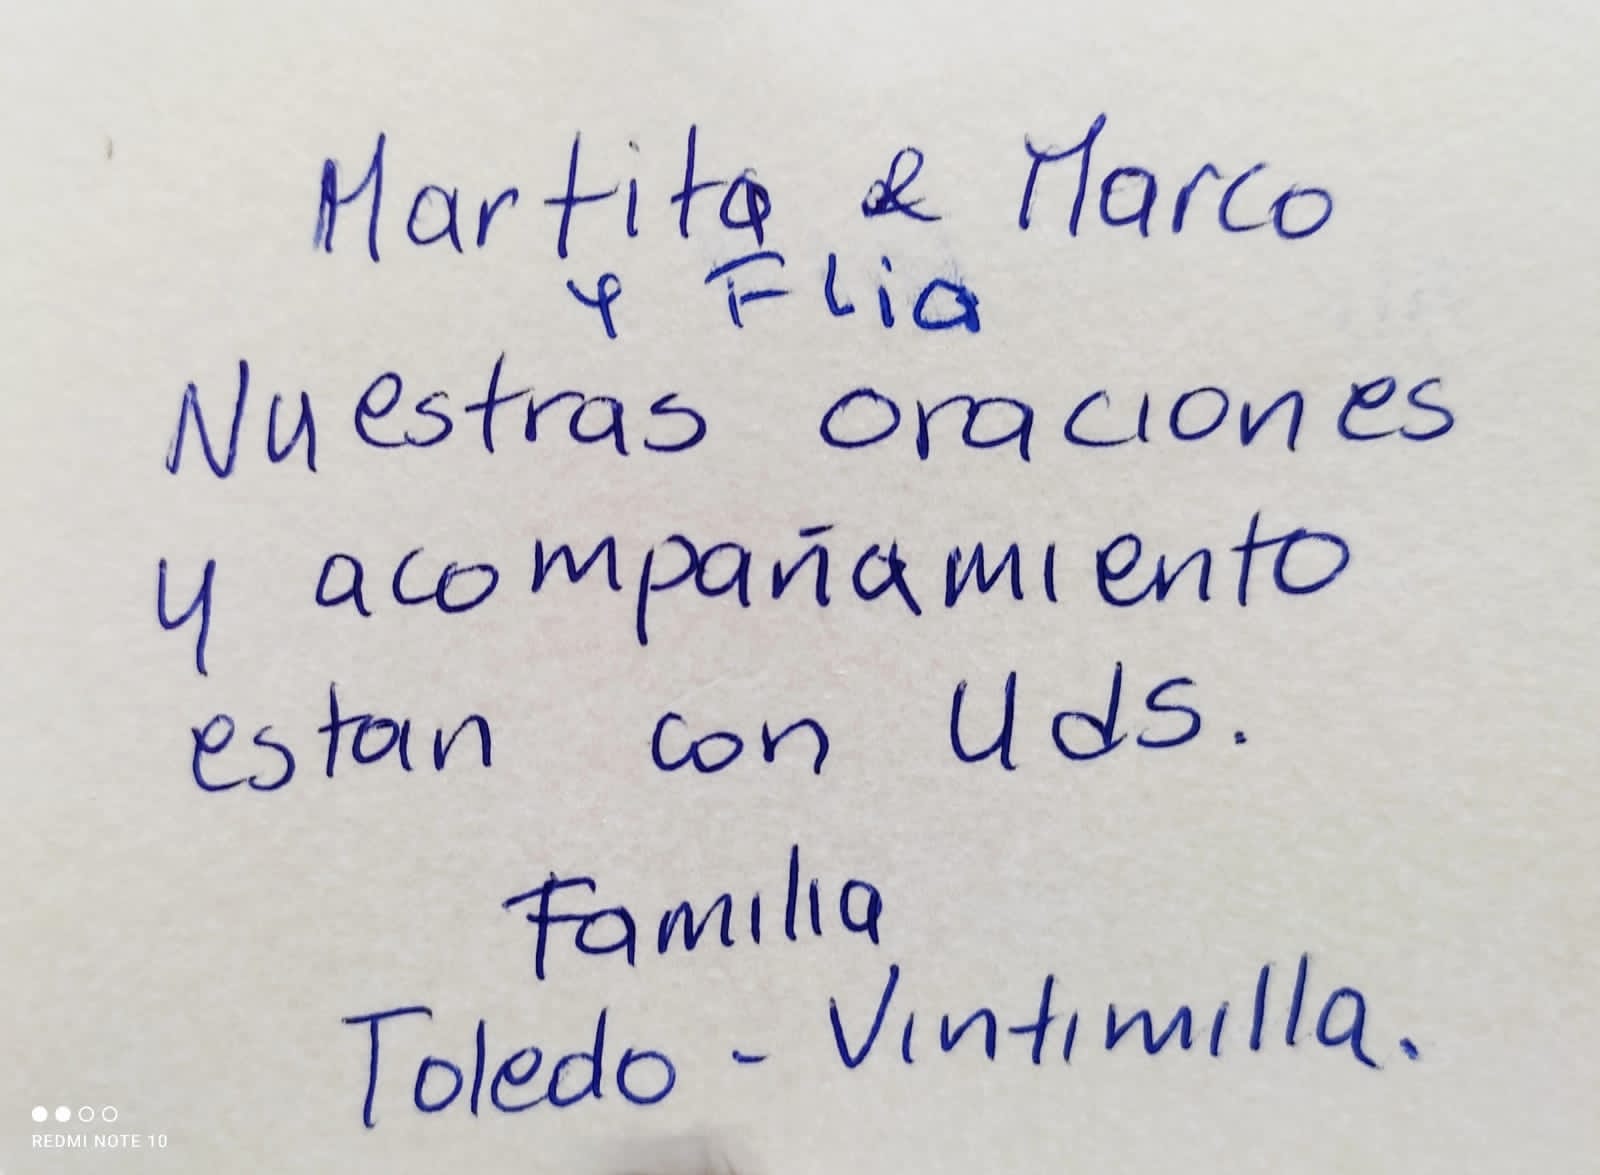 Martita & Marco
y Flia
Nuestras oraciones
y acompañamiento
estan con Uds.
Familia
Toledo - Vintimilla.
REDMI NOTE 10